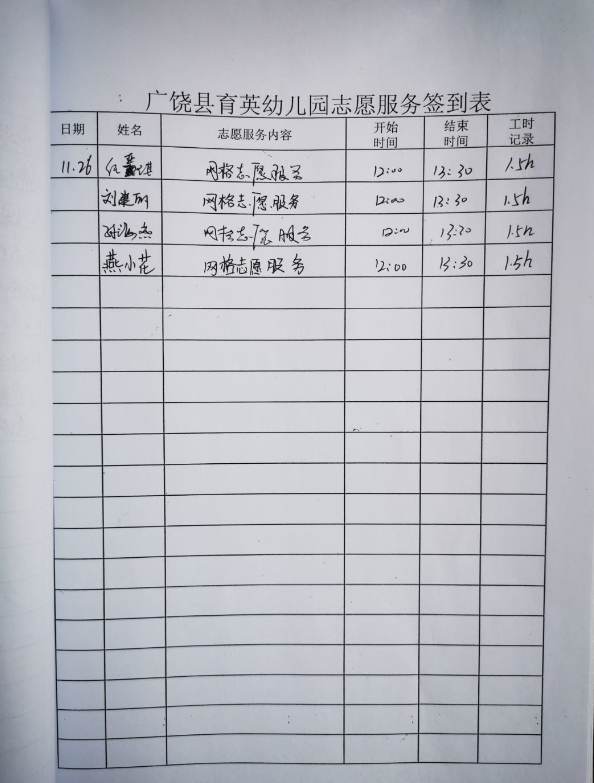 广饶县育英幼儿园志愿服务签到表
日期 姓名 志愿服务内容 开始时间 结束时间 工时记录
11.26 网格志愿服务 12:00 13:30 1.5h
刘建丽 网格志愿服务 12:00 13:30 1.5h
网格志愿服务 12:00 13:30 1.5h
燕小花 网格志愿服务 12:00 13:30 1.5h